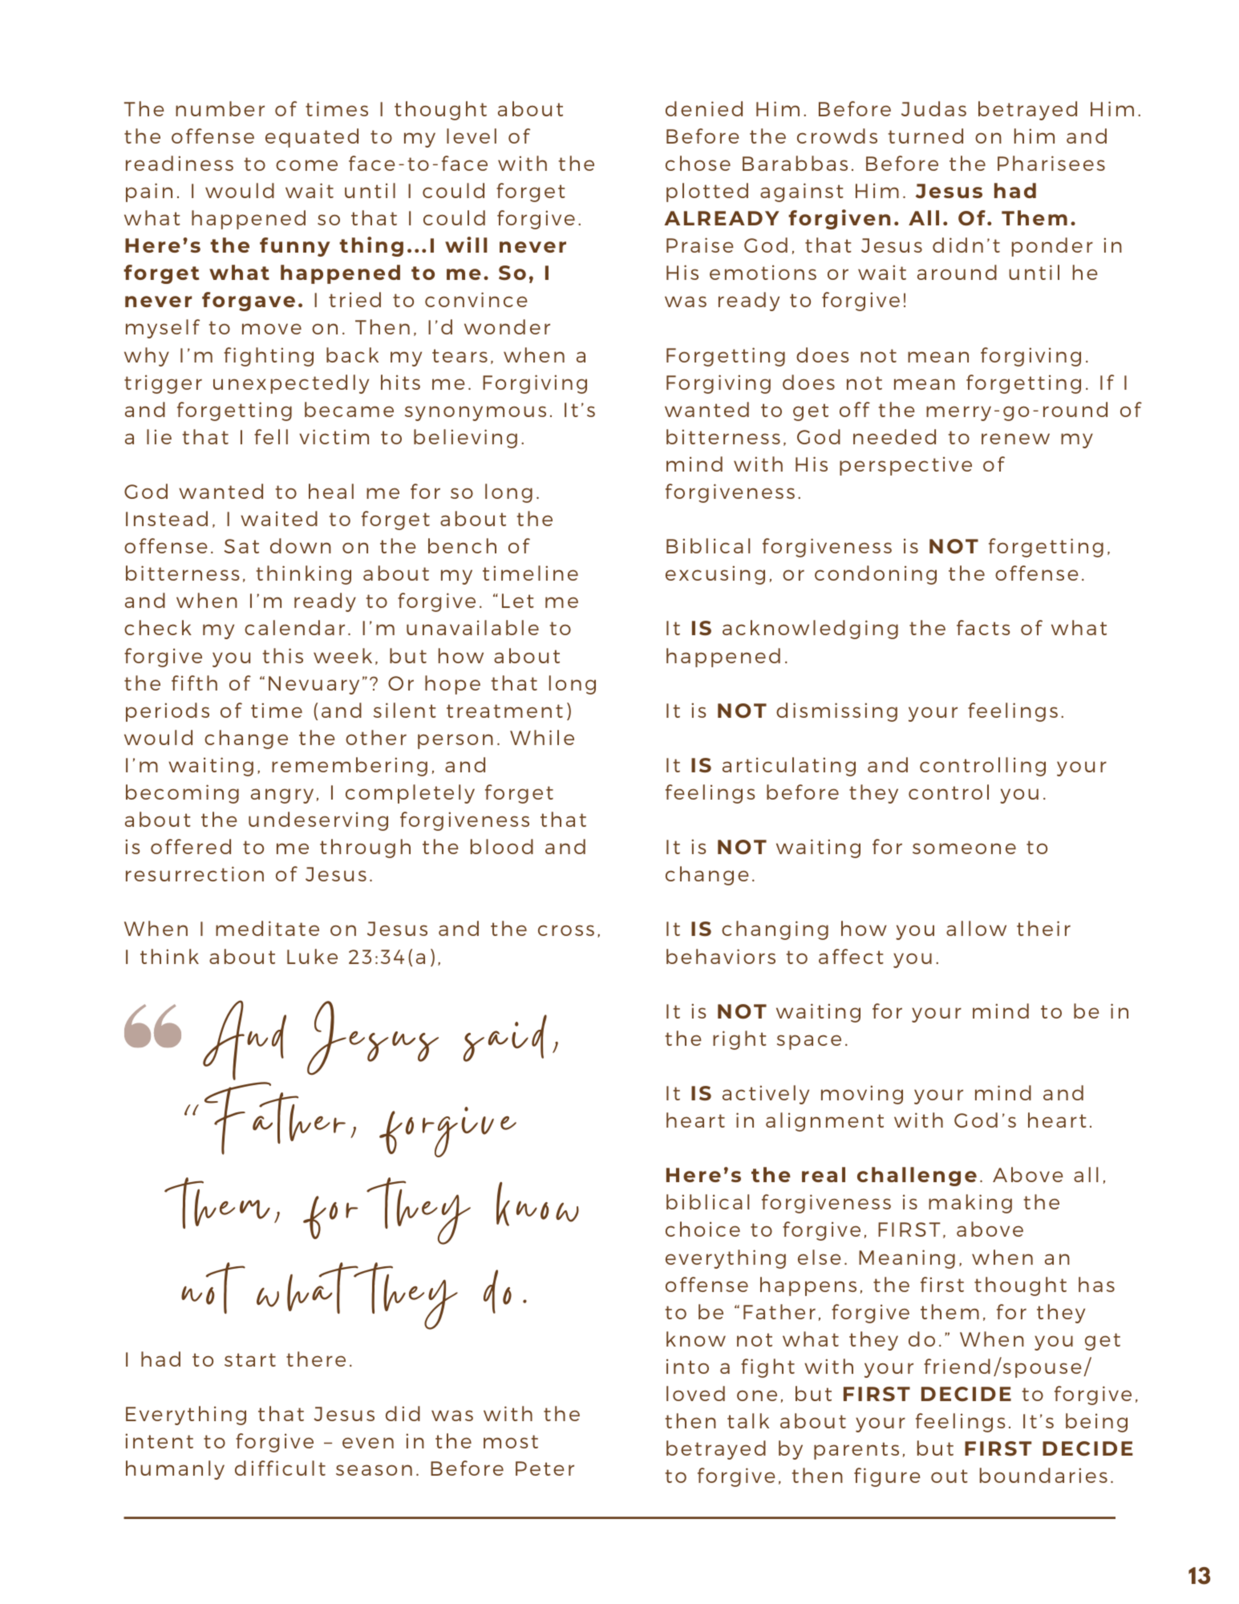 The number of times I thought about
the offense equated to my level of
readiness to come face-to-face with the
pain. I would wait until I could forget
what happened so that I could forgive.
Here’s the funny thing...I will never
forget what happened to me. So, I
never forgave. I tried to convince
myself to move on. Then, I’d wonder
why I’m fighting back my tears, when a
trigger unexpectedly hits me. Forgiving
and forgetting became synonymous. It’s
a lie that I fell victim to believing.
God wanted to heal me for so long.
Instead, I waited to forget about the
offense. Sat down on the bench of
bitterness, thinking about my timeline
and when I’m ready to forgive. “Let me
check my calendar. I’m unavailable to
forgive you this week, but how about
the fifth of “Nevuary”? Or hope that long
periods of time (and silent treatment)
would change the other person. While
I’m waiting, remembering, and
becoming angry, I completely forget
about the undeserving forgiveness that
is offered to me through the blood and
resurrection of Jesus.
When I meditate on Jesus and the cross,
I think about Luke 23:34(a),
“ And Jesus said,
“Father, forgive
them, for they know
not what they do.
I had to start there.
Everything that Jesus did was with the
intent to forgive – even in the most
humanly difficult season. Before Peter
denied Him. Before Judas betrayed Him.
Before the crowds turned on him and
chose Barabbas. Before the Pharisees
plotted against Him. Jesus had
ALREADY forgiven. All. Of. Them.
Praise God, that Jesus didn’t ponder in
His emotions or wait around until he
was ready to forgive!
Forgetting does not mean forgiving.
Forgiving does not mean forgetting. If I
wanted to get off the merry-go-round of
bitterness, God needed to renew my
mind with His perspective of
forgiveness.
Biblical forgiveness is NOT forgetting,
excusing, or condoning the offense.
It IS acknowledging the facts of what
happened.
It is NOT dismissing your feelings.
It IS articulating and controlling your
feelings before they control you.
It is NOT waiting for someone to
change.
It IS changing how you allow their
behaviors to affect you.
It is NOT waiting for your mind to be in
the right space.
It IS actively moving your mind and
heart in alignment with God’s heart.
Here’s the real challenge. Above all,
biblical forgiveness is making the
choice to forgive, FIRST, above
everything else. Meaning, when an
offense happens, the first thought has
to be “Father, forgive them, for they
know not what they do.” When you get
into a fight with your friend/spouse/
loved one, but FIRST DECIDE to forgive,
then talk about your feelings. It’s being
betrayed by parents, but FIRST DECIDE
to forgive, then figure out boundaries.
13